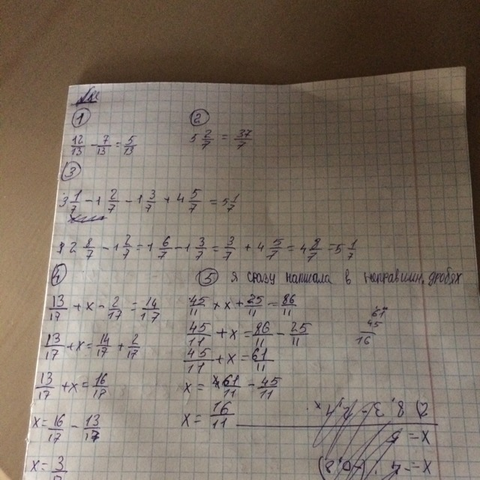 ①
12/13 - 7/13 = 5/13
②
5 2/7 = 37/7
③
3 1/7 - 1 2/7 - 1 3/7 + 4 5/7 = 5 1/7
2 8/7 - 1 2/7 = 1 6/7 - 1 3/7 = 3/7 + 4 5/7 = 4 8/7 = 5 1/7
④
13/17 + x - 2/17 = 14/17
13/17 + x = 14/17 + 2/17
13/17 + x = 16/17
x = 16/17 - 13/17
x = 3/17
⑤ я сразу написала в неправильн. дробях
45/11 + x + 25/11 = 86/11
45/11 + x = 86/11 - 25/11
45/11 + x = 61/11
x = 61/11 - 45/11
x = 16/11
61
45
16